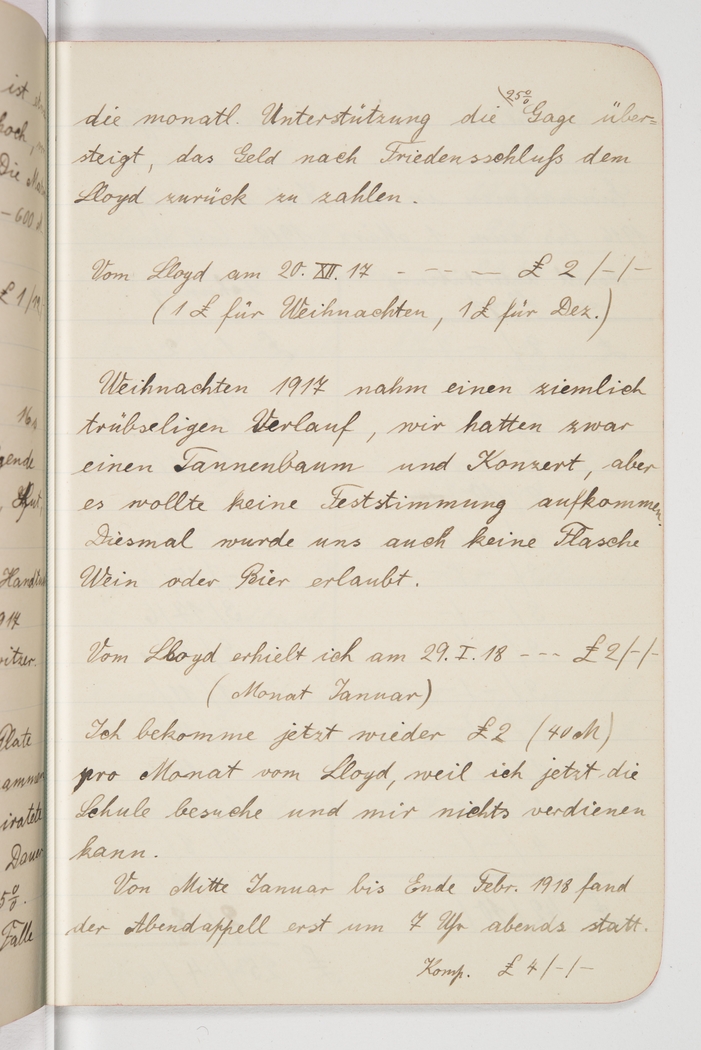 die monatl. Unterstützung die 25% Gage über=
steigt, das Geld nach Friedensschluß dem
Lloyd zurück zu zahlen.
Vom Lloyd am 20. XII. 17 - - - - £ 2/-/-
(1 £ für Weihnachten, 1 £ für Dez.)
Weihnachten 1917 nahm einen ziemlich
trübseligen Verlauf, wir hatten zwar
einen Tannenbaum und Konzert, aber
es wollte keine Feststimmung aufkommen.
Diesmal wurde uns auch keine Flasche
Wein oder Bier erlaubt.
Vom Lloyd erhielt ich am 29. I. 18 --- £ 2/-/-
(Monat Januar)
Ich bekomme jetzt wieder £ 2 (40 M)
pro Monat vom Lloyd, weil ich jetzt die
Schule besuche und mir nichts verdienen
kann.
Von Mitte Januar bis Ende Febr. 1918 fand
der Abendappell erst um 7 Uhr abends statt.
Komp. £ 4/-/-